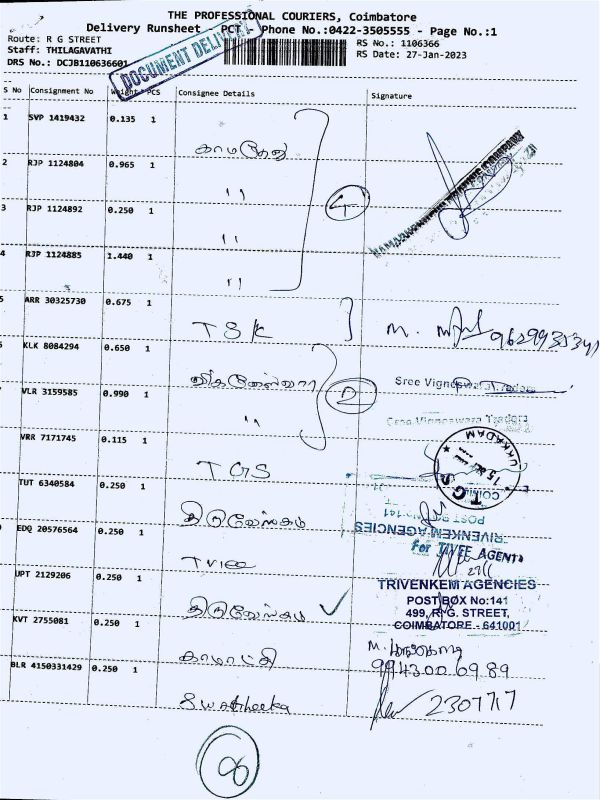 THE PROFESSIONAL COURIERS, Coimbatore
Delivery Runsheet - PCT - Phone No.:0422-3505555 - Page No.:1
Route: R G STREET
RS No.: 1106366
Staff: THILAGAVATHI
RS Date: 27-Jan-2023
DRS No.: DCJB110636601
DOCUMENT DELIVERY
S No Consignment No Weight PCS Consignee Details Signature
1 SVP 1419432 0.135 1 காமதேனு
2 RJP 1124804 0.965 1 "
3 RJP 1124892 0.250 1 "
4 RJP 1124885 1.440 1 "
4
5 ARR 30325730 0.675 1 TSK M.
6 KLK 8084294 0.650 1 Sree Vigneswara Traders
VLR 3159585 0.990 1 " Sree Vigneswara Traders
2
VRR 7171745 0.115 1 TGS
UKKADAM
TUT 6340584 0.250 1
TRIVENKEM AGENCIES
EDQ 20576564 0.250 1 Tvice
For TIVEE AGENT
UPT 2129206 0.250 1
TRIVENKEM AGENCIES
POST BOX No:141
499, R.G. STREET,
COIMBATORE - 641001
KVT 2755081 0.250 1 காமாட்சி M.
994300 69 89
BLR 4150331429 0.250 1 Swatheeka 230717
8